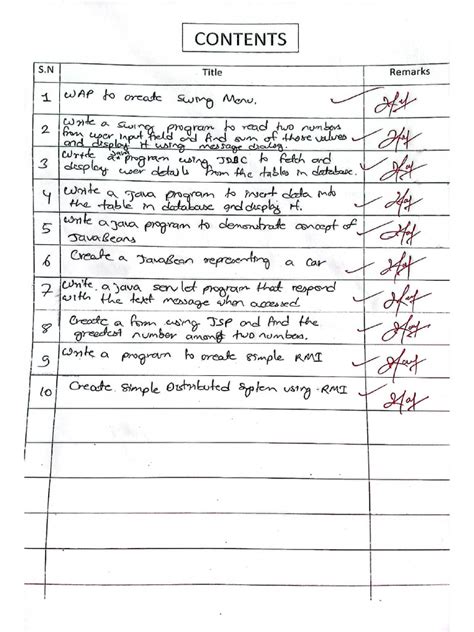 CONTENTS
S.N Title Remarks
1 WAP to create Swing Menu.
2 Write a swing program to read two numbers
from user input field and find sum of those values
and display it using message dialog.
3 Write a Java program using JDBC to fetch and
display user details from the tables in database.
4 Write a Java program to insert data into
the table in database and display it.
5 Write a java program to demonstrate concept of
JavaBeans
6 Create a JavaBean representing a car
7 Write a java servlet program that respond
with the text message when accessed
8 Create a form using JSP and find the
greatest number among two numbers.
9 Write a program to create simple RMI
10 Create simple Distributed System using RMI